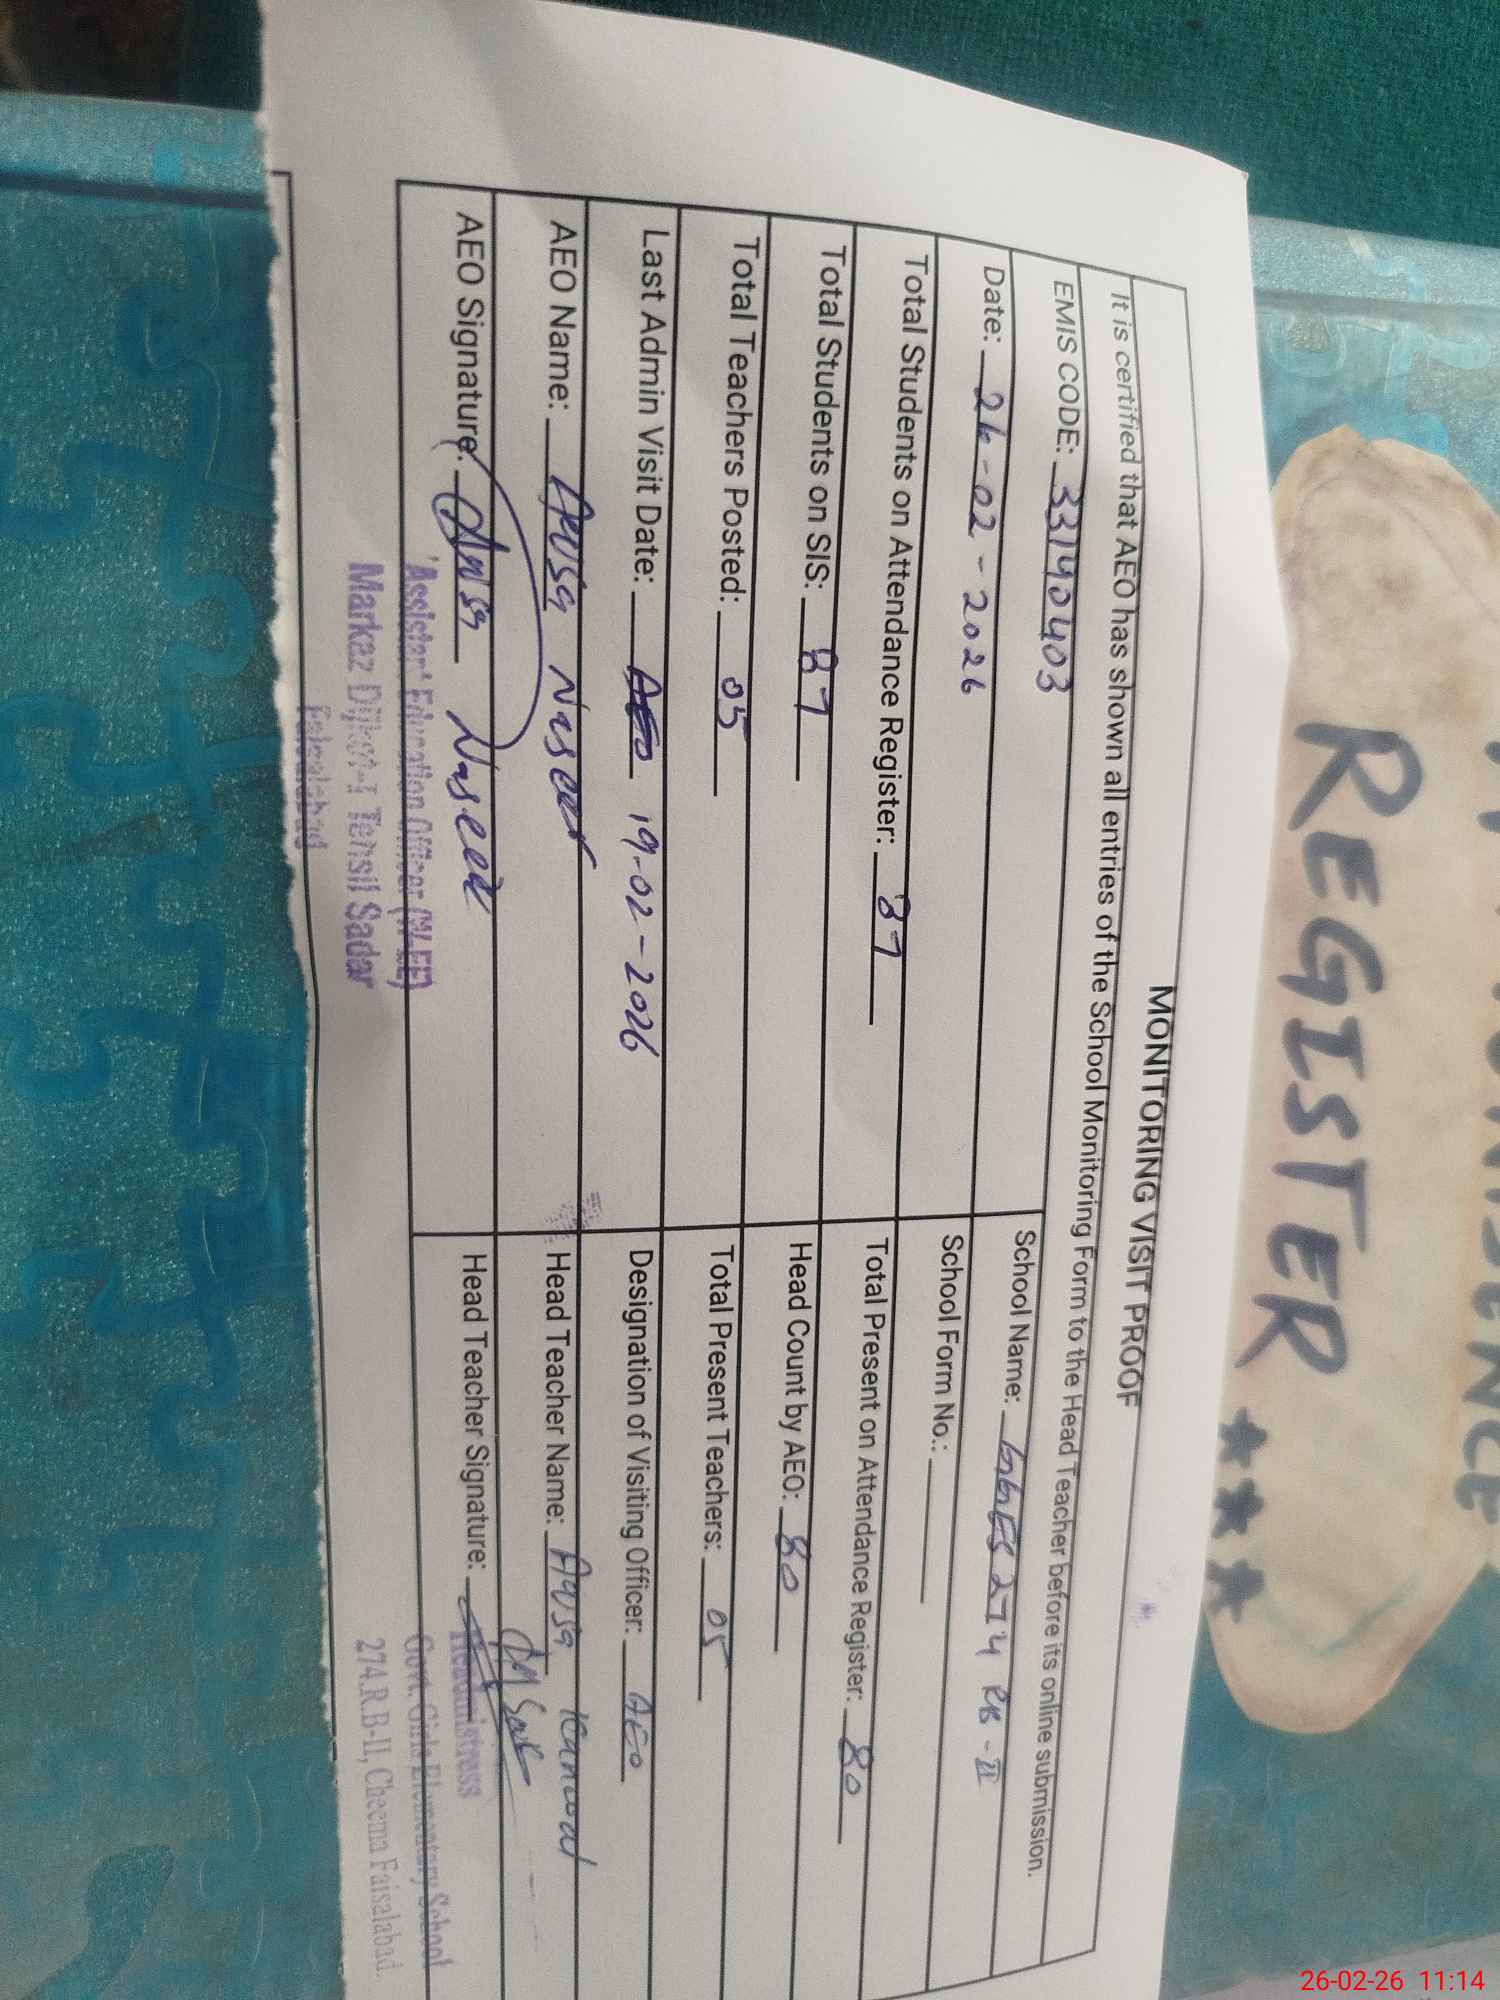 MONITORING VISIT PROOF
It is certified that AEO has shown all entries of the School Monitoring Form to the Head Teacher before its online submission.
EMIS CODE: 33140403
School Name: GGES 274 RB-II
Date: 26-02-2026
School Form No.:
Total Students on Attendance Register: 87
Total Present on Attendance Register: 80
Total Students on SIS: 87
Head Count by AEO: 80
Total Teachers Posted: 05
Total Present Teachers: 05
Last Admin Visit Date: AEO 19-02-2026
Designation of Visiting Officer: AEO
AEO Name: Aqsa Naseer
Head Teacher Name: Aqsa Kanwal
AEO Signature: Aqsa Naseer
Head Teacher Signature:
Assistant Education Officer (W-EE)
Markaz Dijkot-I Tehsil Sadar
Faisalabad
Headmistress
Govt. Girls Elementary School
274.R.B-II, Cheema Faisalabad.
REGISTER
★★★
26-02-26 11:14